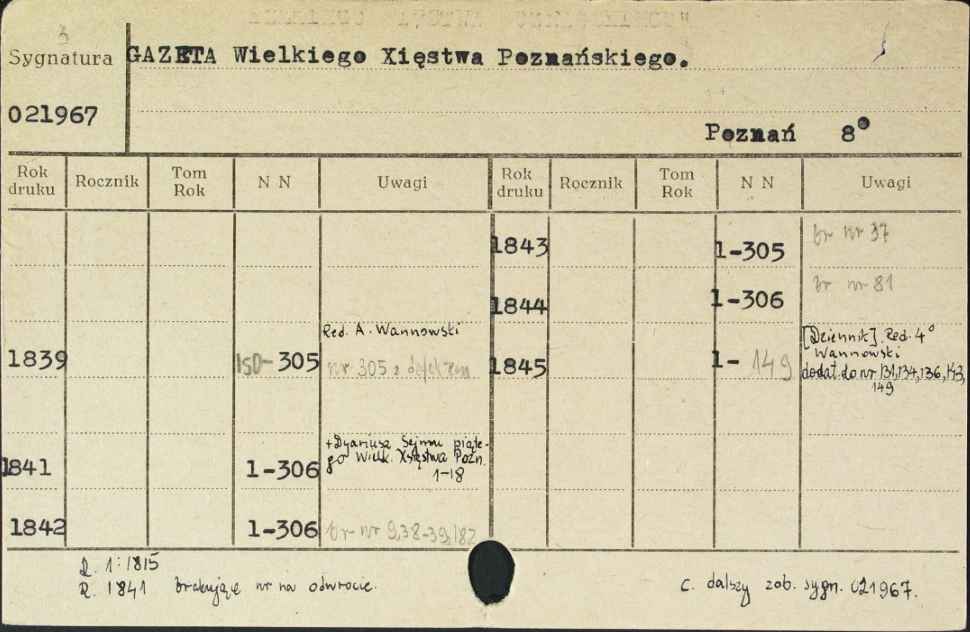 3
Sygnatura
GAZETA Wielkiego Xięstwa Poznańskiego.
021967
Poznań 8°
Rok druku Rocznik Tom Rok N N Uwagi Rok druku Rocznik Tom Rok N N Uwagi
1843 1-305 br nr 37
1844 1-306 br nr 81
Red. A. Wannowski
1839 150-305 nr 305 z defektem
1845 1-149 [Dziennik]. Red. 4°
Wannowski
dodat. do nr 131,134,136,143,
149
+Dyariusz Sejmu piąte-
go Wielk. Xięstwa Pozn.
1-18
1841 1-306
1842 1-306 br nr 9,38-39,182
R. 1:1815
R. 1841 brakujące nr na odwrocie.
C. dalszy zob. sygn. 021967.